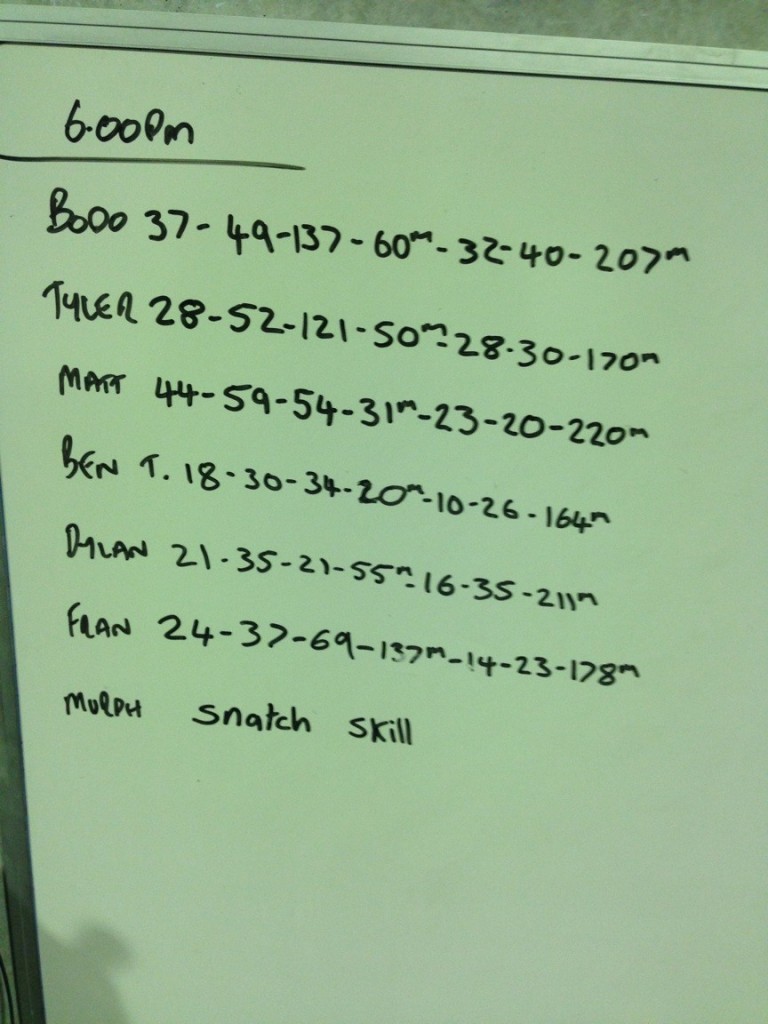 6.00Pm
BODO 37-49-137-60m-32-40-207m
TYLER 28-52-121-50m-28-30-170m
MATT 44-59-54-31m-23-20-220m
BEN T. 18-30-34-20m-10-26-164m
DYLAN 21-35-21-55m-16-35-211m
FRAN 24-37-69-137m-14-23-178m
MURPH snatch skill